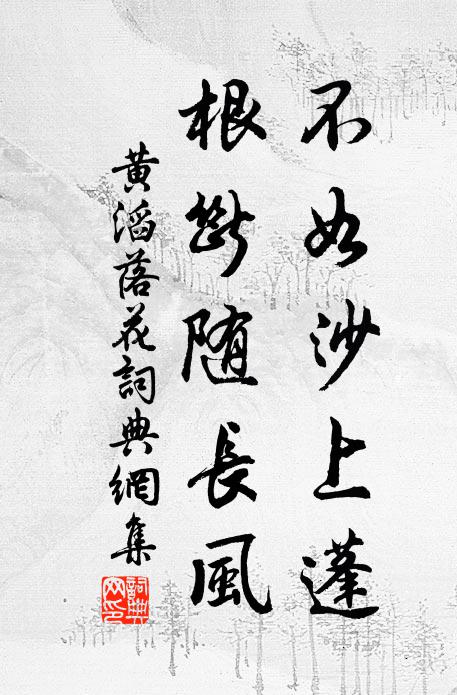 不如沙上蓬
根斷随長風
黃滔落花詞典網集
詞典網印